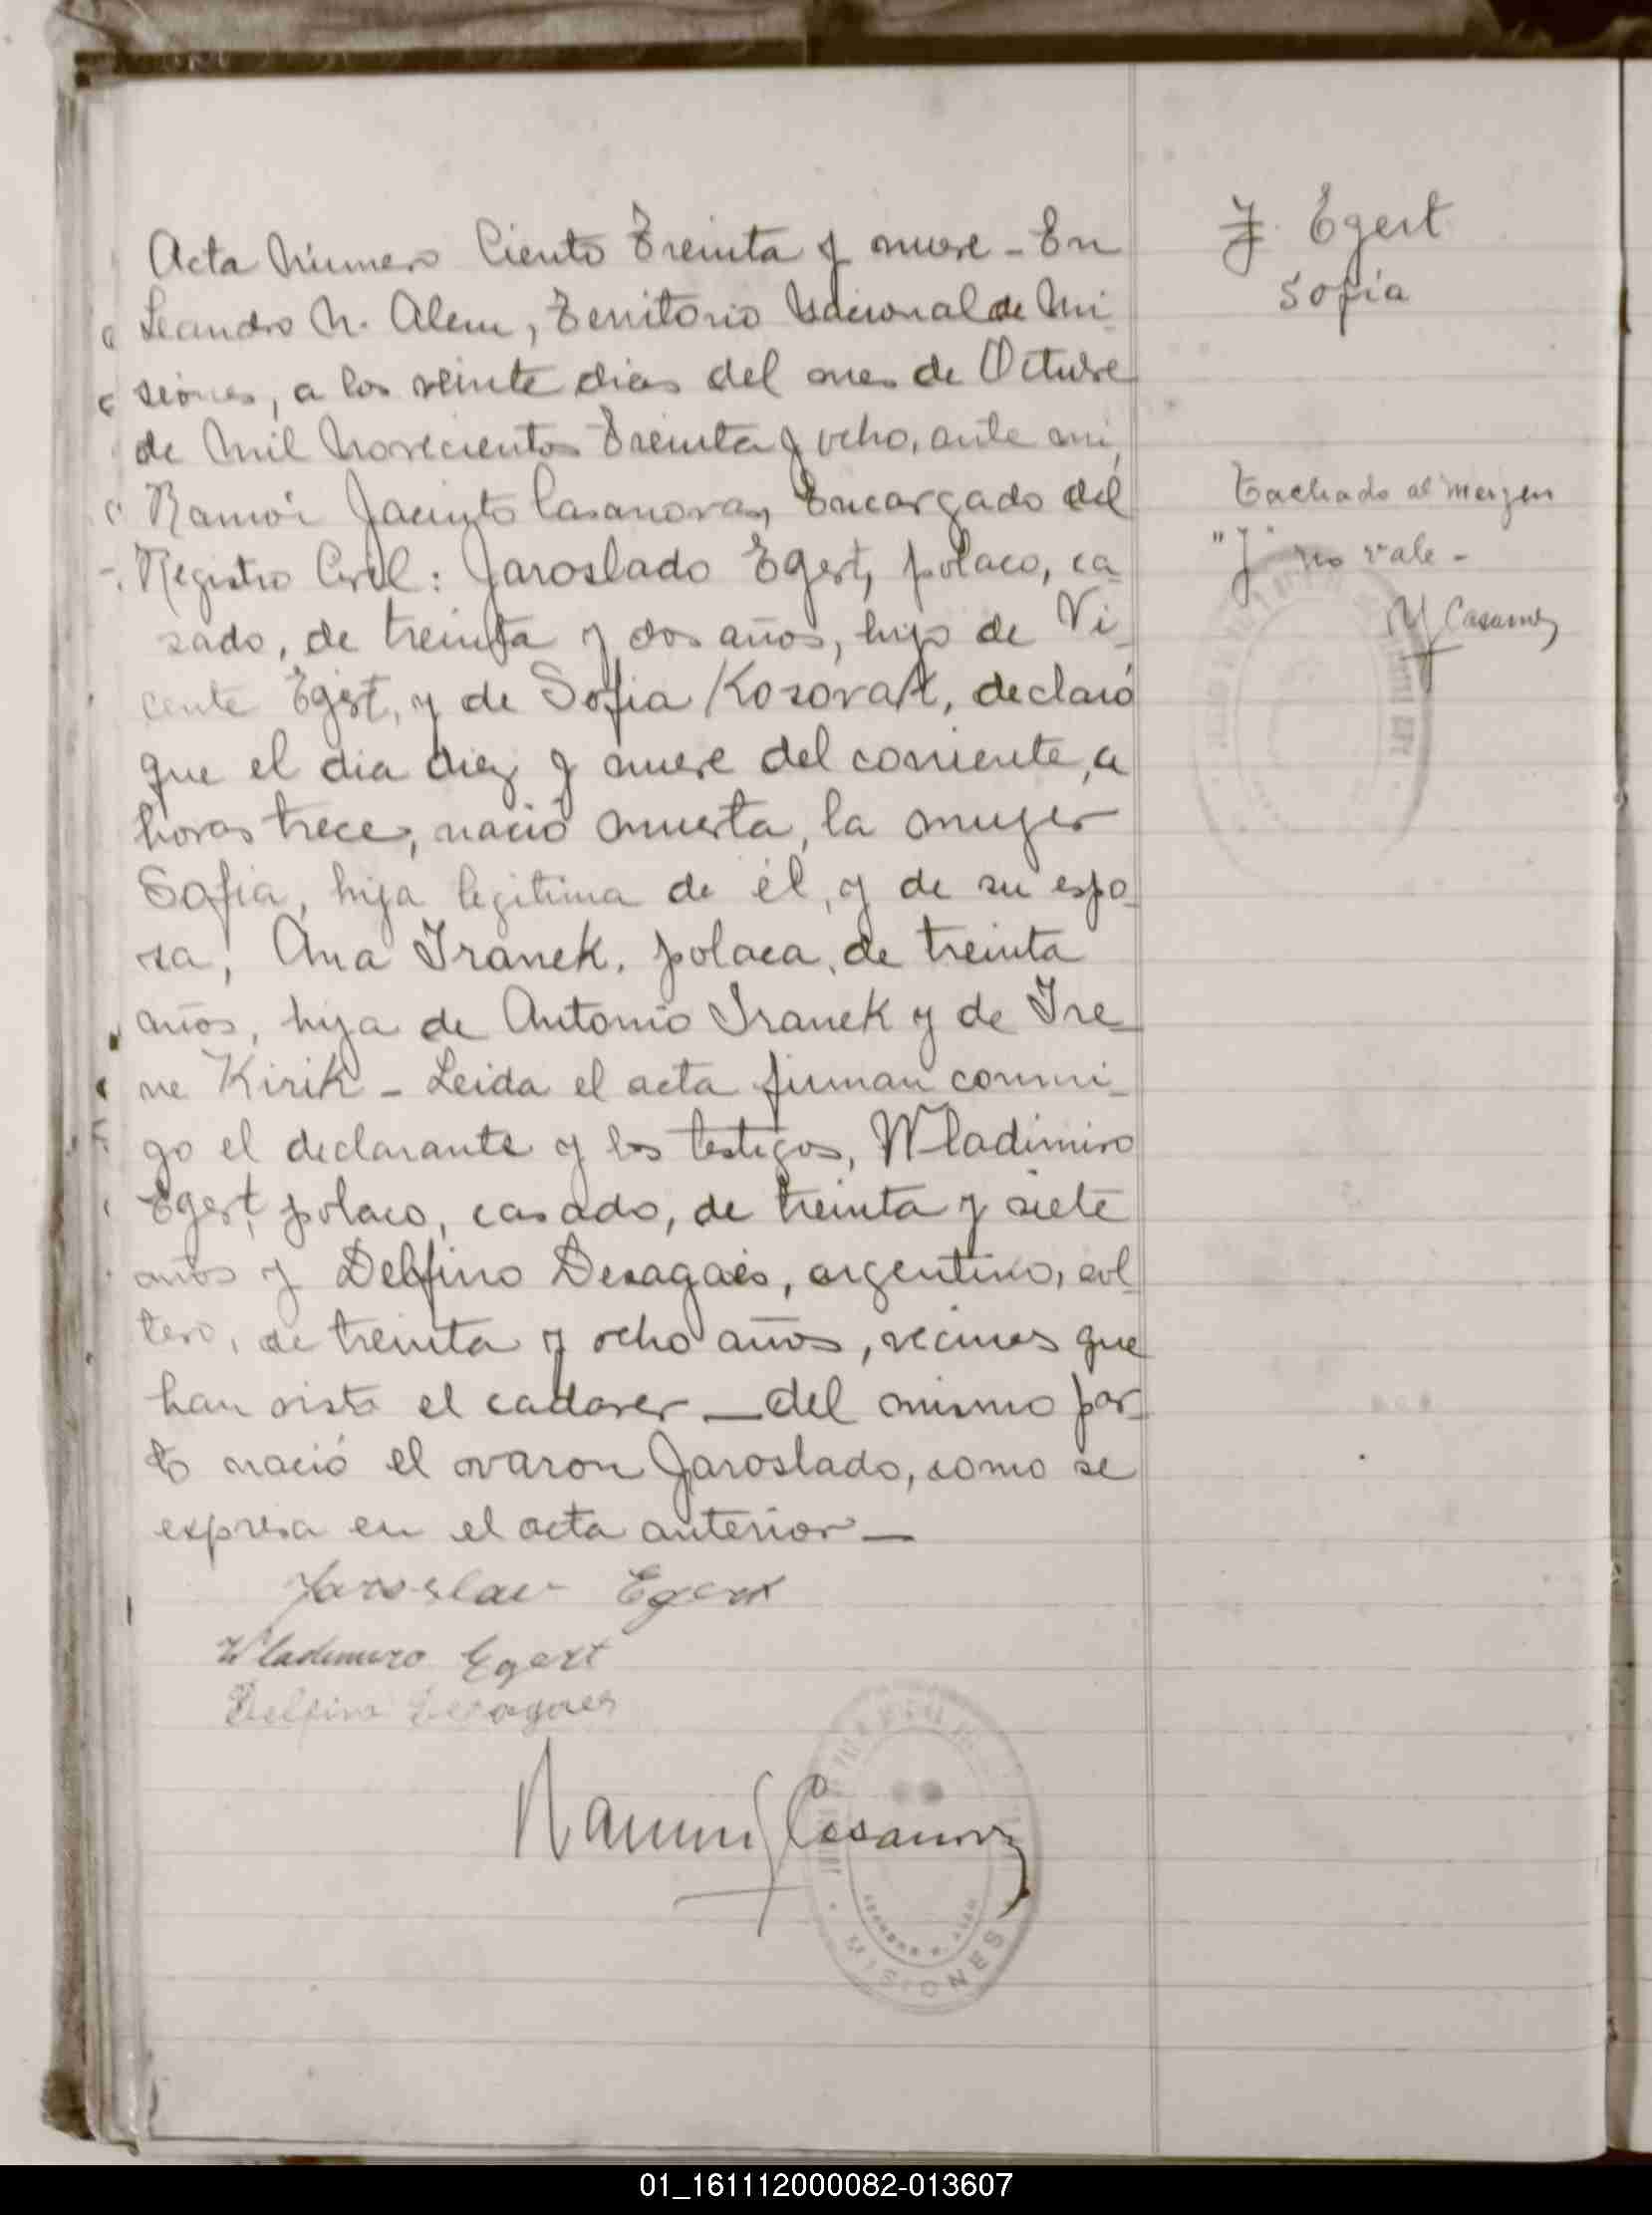 Acta Número Ciento Treinta y nueve - En
Leandro N. Alem, Territorio Nacional de Mi-
siones, a los veinte dias del mes de Octubre
de Mil Novecientos Treinta y ocho, ante mi,
Ramón Jacinto Casanova, Encargado del
Registro Civil: Jaroslado Egert, polaco, ca-
sado, de treinta y dos años, hijo de Vi-
cente Egert, y de Sofia Kozovak, declaró
que el dia diez y nueve del corriente, a
horas trece, nació muerta, la mujer
Sofia, hija legitima de él, y de su espo-
sa, Ana Iranek, polaca, de treinta
años, hija de Antonio Iranek y de Ire-
ne Kirik - Leida el acta firman conmi-
go el declarante y los testigos, Wladimiro
Egert, polaco, casado, de treinta y siete
años y Delfino Dezagaes, argentino, sol-
tero, de treinta y ocho años, vecinos que
han visto el cadaver - del mismo par-
to nació el varon Jaroslado, como se
expresa en el acta anterior -
Jaroslav Egert
Wladimiro Egert
Delfino Dezagaes
Ramón J Casanova
MISIONES
J. Egert
Sofía
Tachado al margen
"J" no vale -
RJ Casanova
01_161112000082-013607